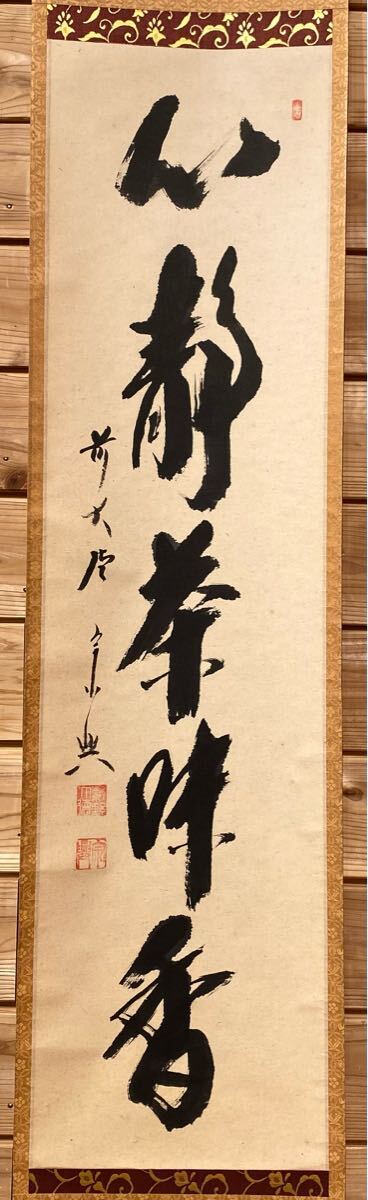 心静茶味香
前大徳 宗典